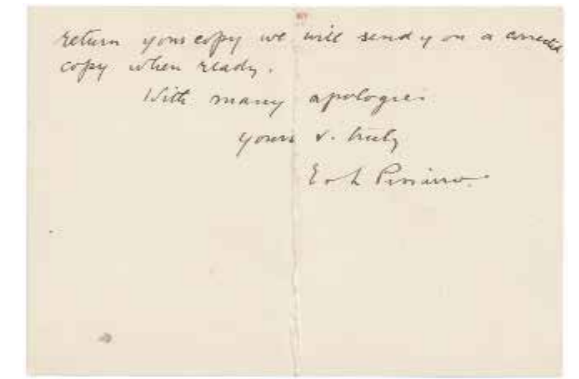 return your copy we will send you a corrected
copy when ready.
With many apologies
yours v. truly
E & L Pissarro.